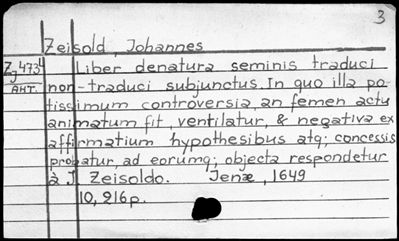 3
Zeisold, Johannes
Zg4734 Liber denatura seminis traduci
Aнт. non-traduci subjunctus. In quo illa po-
tissimum controversia, an femen actu
animatum fit, ventilatur, & negativa ex
affirmatium hypothesibus atq; concessis
probatur, ad eorumq; objecta respondetur
à J. Zeisoldo. Jenæ, 1649
10, 216p.